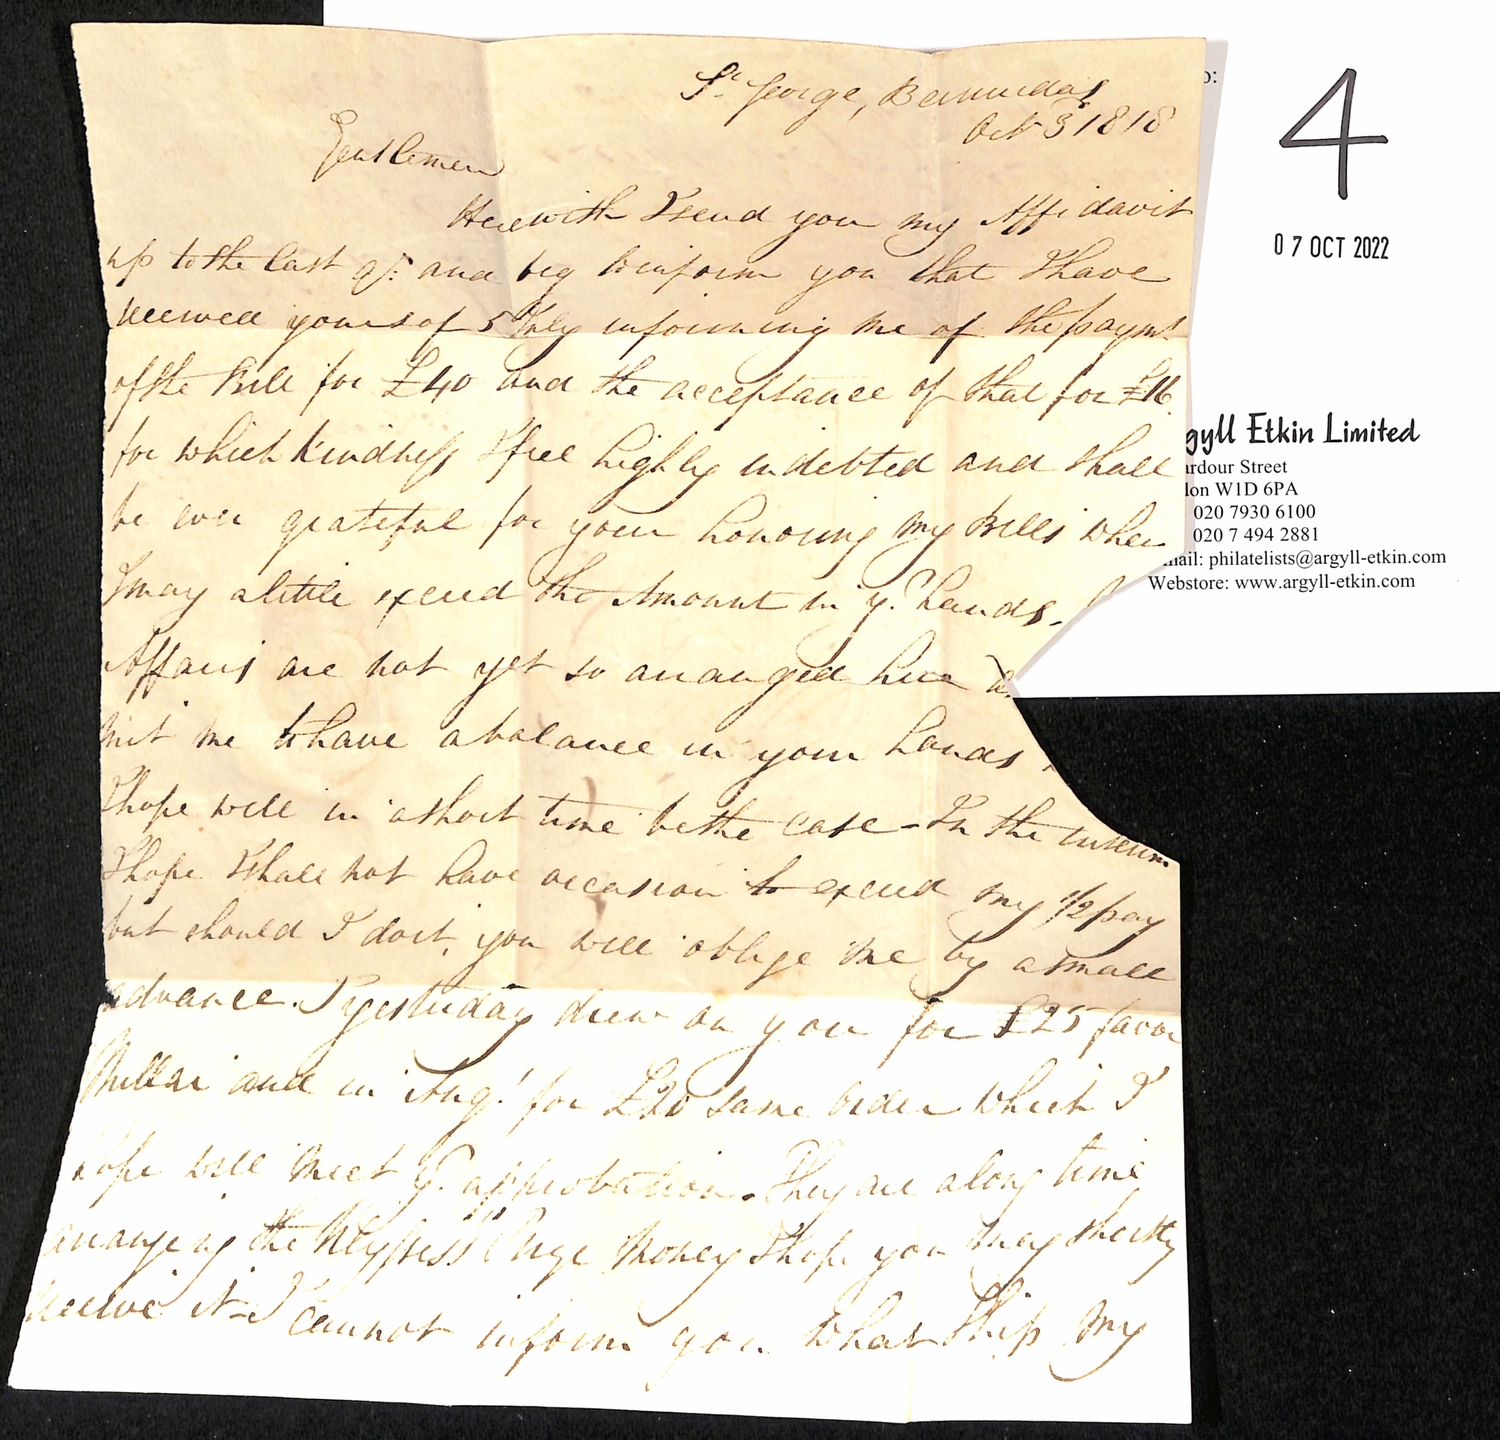 St George, Bermudas
Oct 3d 1818
Gentlemen
Herewith I send you my Affidavit
up to the last qr. and beg to inform you that I have
received yours of 5 July informing me of the paymt
of the Bill for £40 and the acceptance of that for £16
for which kindness I feel highly indebted and shall
be ever grateful for your honoring my Bills when
I may a little exceed the Amount in yr. hands.
Affairs are not yet so arranged here
mit me to have a balance in your hands
I hope will in a short time be the case - In the interim
I hope I shall not have occasion to exceed my 1/2 pay
but should I do it, you will oblige me by a small
advance. I yesterday drew on you for £25 favor
Millar and in Augt for £20 same order which I
hope will meet yr. approbation. They are a long time
arranging the Prize Money I hope you may shortly
receive it - I cannot inform you what Ship my
o:
4
07 OCT 2022
gyll Etkin Limited
ardour Street
don W1D 6PA
020 7930 6100
020 7 494 2881
mail: philatelists@argyll-etkin.com
Webstore: www.argyll-etkin.com